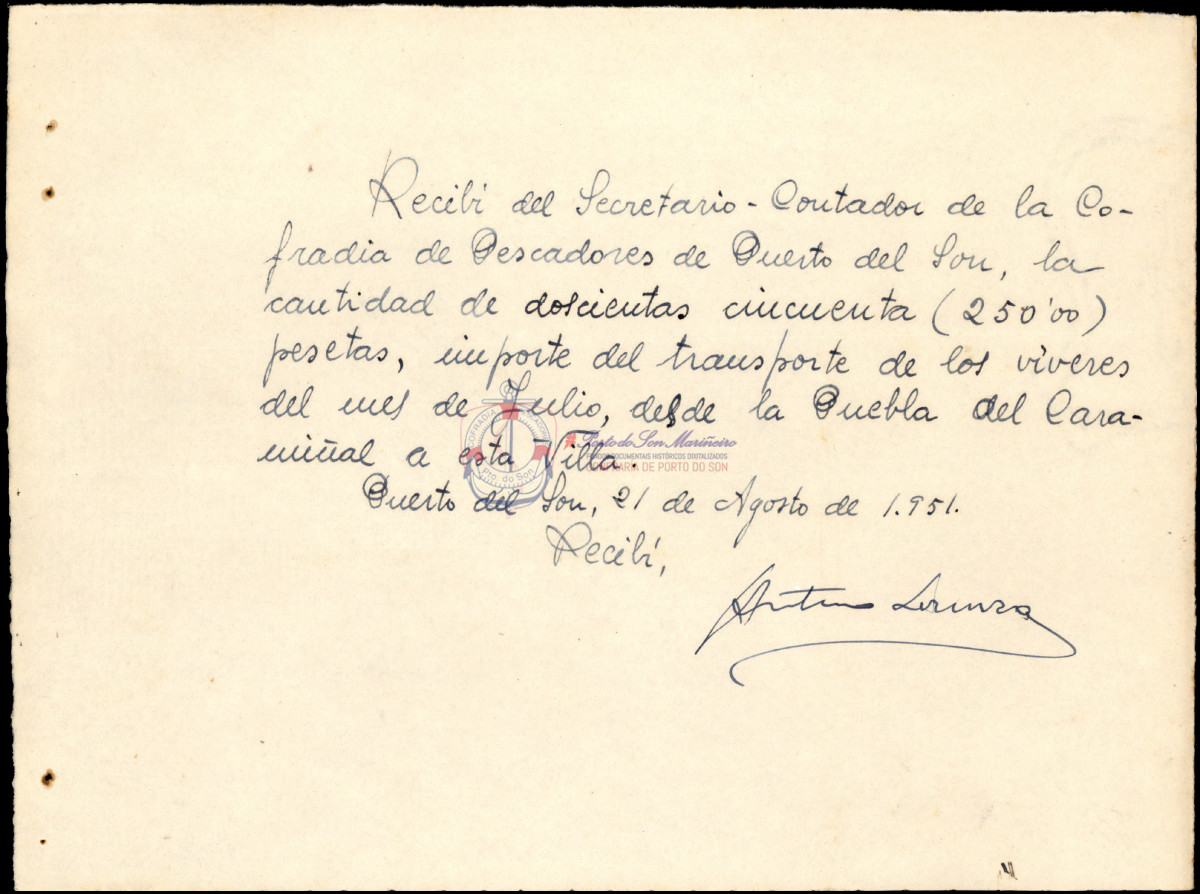 Recibí del Secretario-Contador de la Co-
fradia de Pescadores de Puerto del Son, la
cantidad de doscientas cincuenta (250'00)
pesetas, importe del transporte de los víveres
del mes de Julio, desde la Puebla del Cara-
miñal a esta Villa.
Puerto del Son, 21 de Agosto de 1.951.
Recibí,
COFRADIA
Pto. do Son
#Porto do Son Mariñeiro
FONDOS DOCUMENTAIS HISTÓRICOS DIXITALIZADOS
CONFRARÍA DE PORTO DO SON